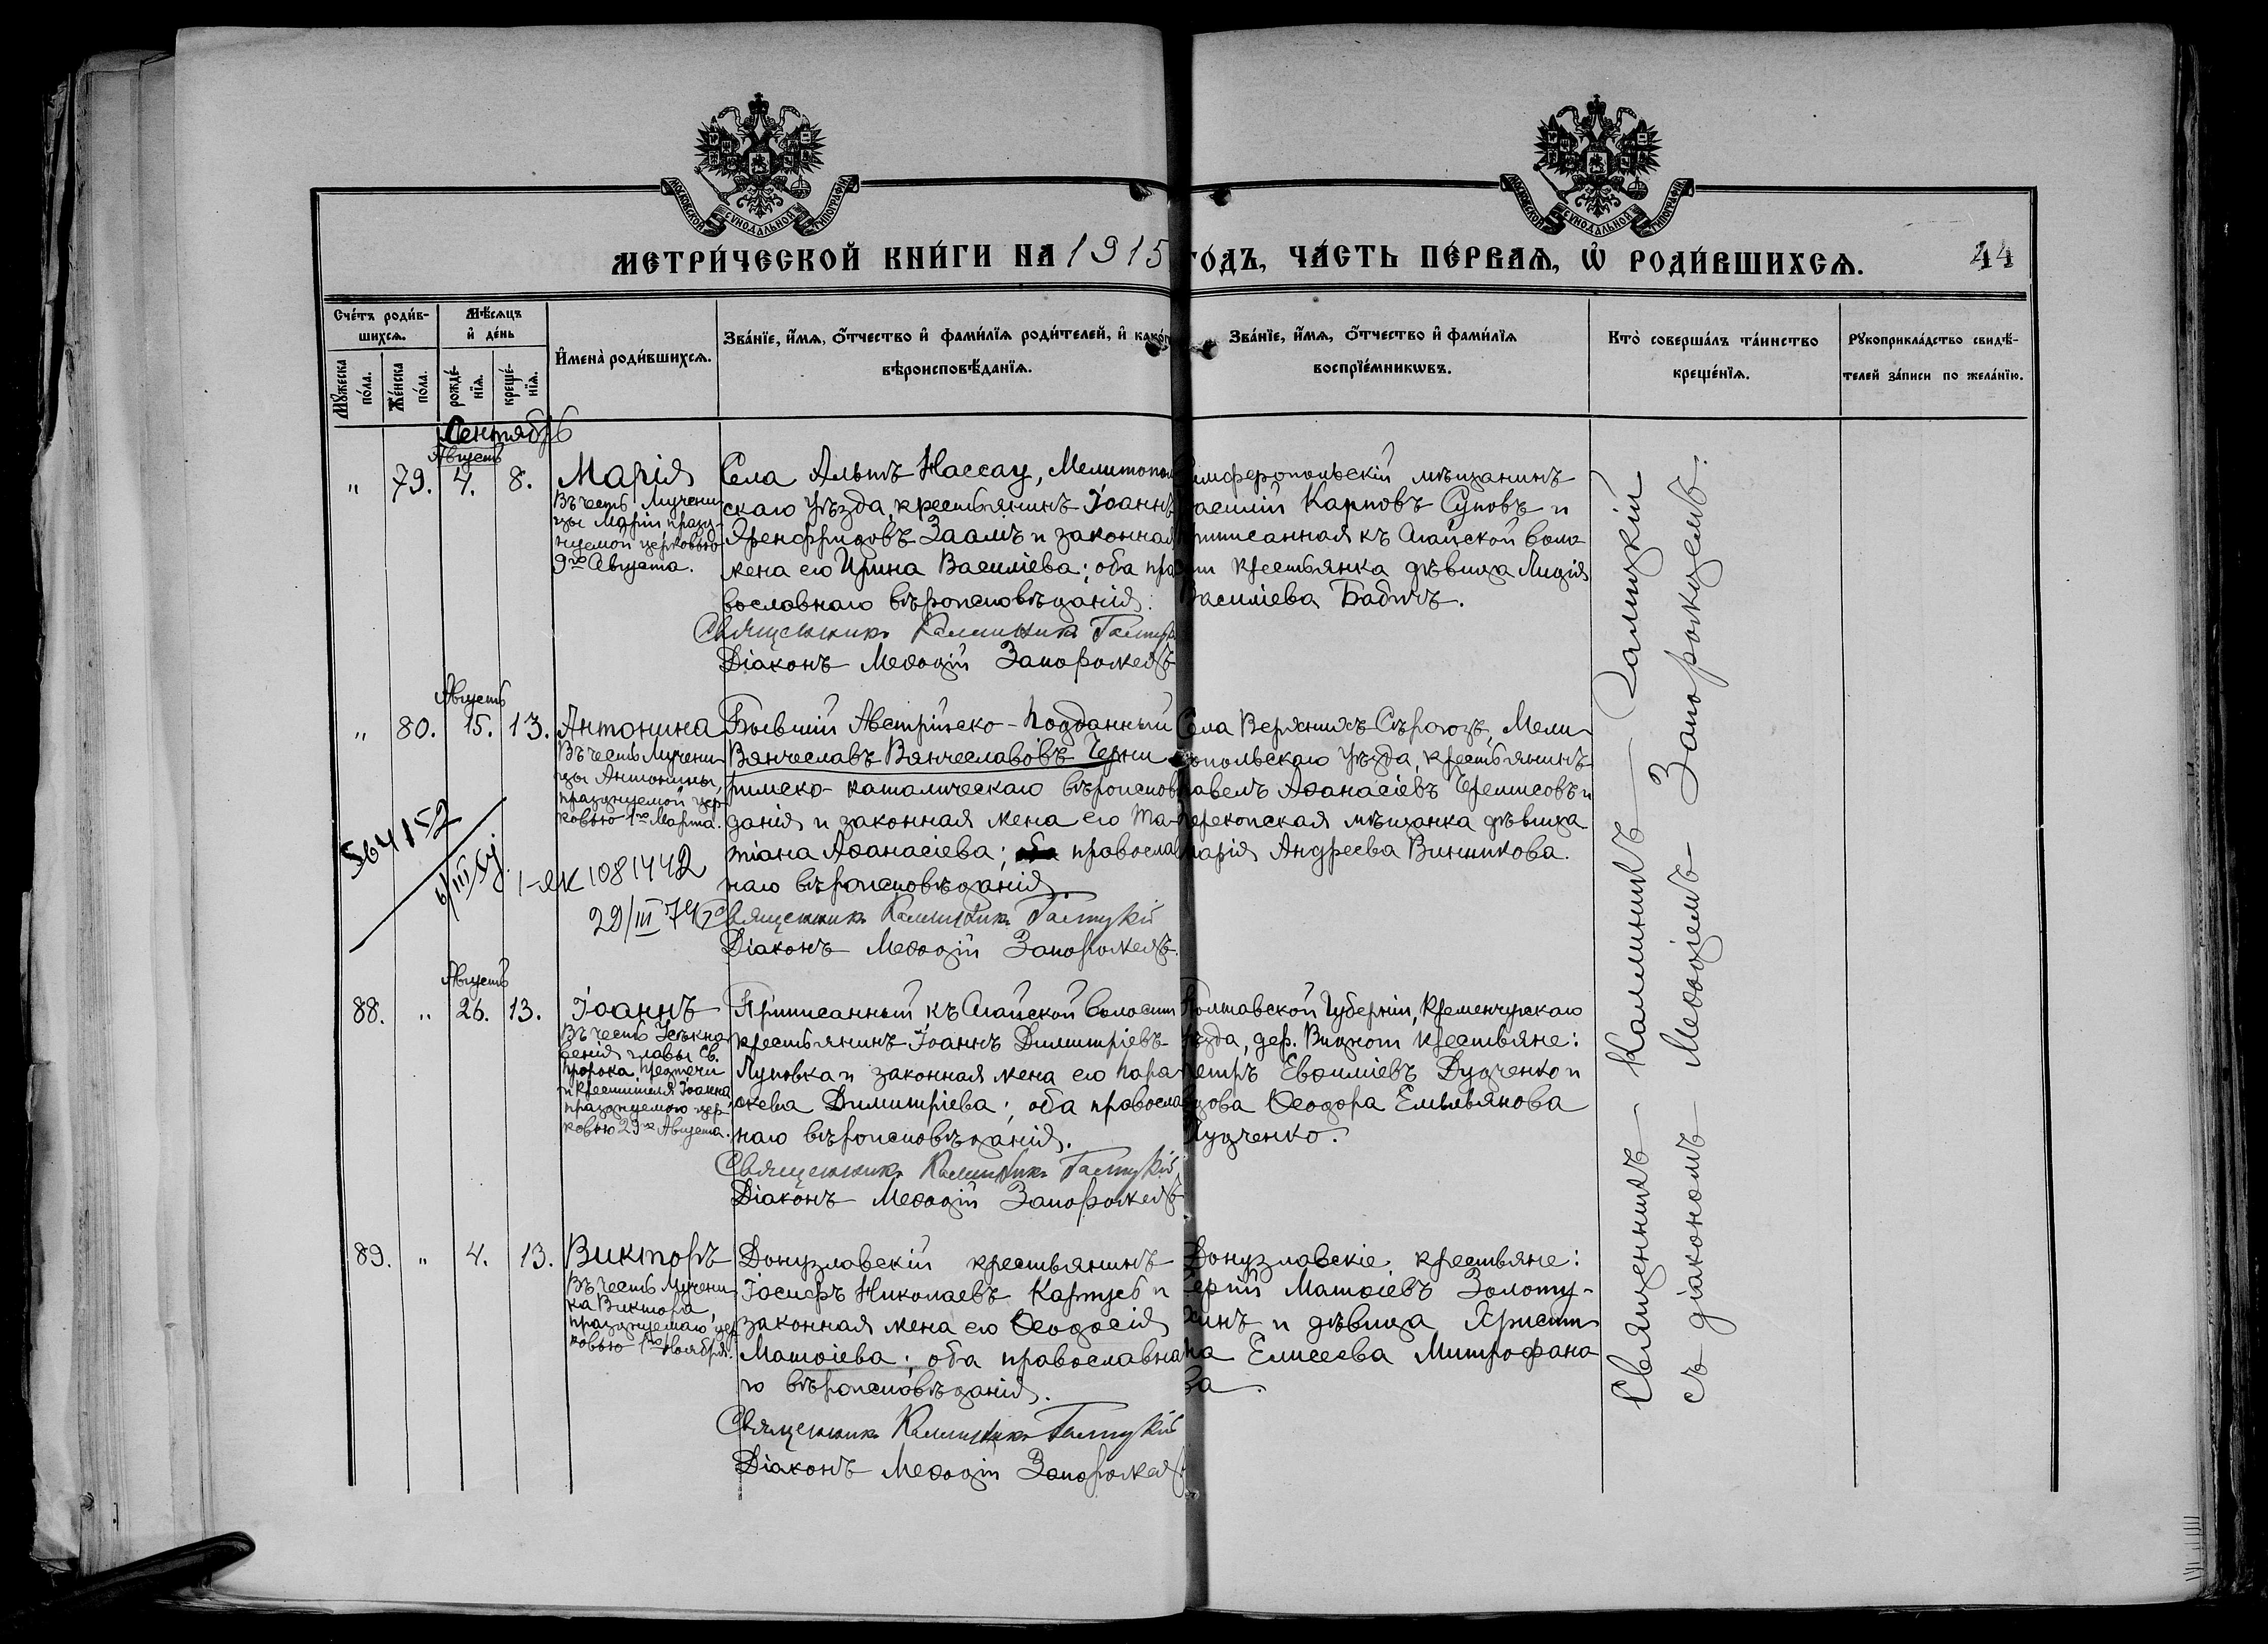 МОСКОВСКОЙ СѴНОДАЛЬНОЙ ТИПОГРАФІИ
МОСКОВСКОЙ СѴНОДАЛЬНОЙ ТИПОГРАФІИ
МЕТРИ́ЧЕСКОЙ КНИ́ГИ НА 1915 ГО́ДЪ, ЧА́СТЬ ПЕ́РВАѦ, Ѡ҆ РОДИ́ВШИХСѦ.
44
Сче́тъ роди́в-
шихсѧ.
Мꙋ́жеска по́ла.
Же́нска по́ла.
Мѣ́сѧцъ
и҆ де́нь
рожде́-
нїѧ.
креще́-
нїѧ.
И҆мена̀ роди́вшихсѧ.
Зва́нїе, и҆́мѧ, о҆́тчество и҆ фами́лїѧ роди́телей, и҆ како́гѡ
вѣроисповѣ́данїѧ.
Зва́нїе, и҆́мѧ, о҆́тчество и҆ фами́лїѧ
воспрїе́мникѡвъ.
Кто̀ соверша́лъ та́инство
креще́нїѧ.
Рꙋкоприкла́дство свидѣ́-
телей за́писи по жела́нїю.
Сентябрь
Августъ
" 79. 4. 8.
Марія
Въ честь Мучени-
цы Маріи празд-
нуемой церковью
9го Августа.
Села Альтъ Нассау, Мелитополь
скаго уѣзда, крестьянинъ Іоаннъ
Яренфридовъ Заалъ и законная
жена его Ирина Василіева; оба пра
вославнаго вѣроисповѣданія.
Священникъ Каллиникъ Галиц
Діаконъ Меѳодій Запорожецъ
имферопольскій мѣщанинъ
асилій Карповъ Суповъ и
риписанная къ Агайской воло
ти крестьянка дѣвица Лидія
Василіева Бабичъ.
Августъ
" 80. 15. 13.
Антонина
Въ честь Мучени-
цы Антонины,
празднуемой цер-
ковью 1го Марта.
Бывшій Австрійско-Подданный
Вячеславъ Вячеславовъ Черни
римско-католическаго вѣроисповѣ
данія и законная жена его Та-
тіана Аѳанасіева; православ
наго вѣроисповѣданія.
Священникъ Каллиникъ Галицкій
Діаконъ Меѳодій Запорожецъ.
Села Верхнихъ Сѣрогозъ, Мели-
опольскаго уѣзда, крестьянинъ
Павелъ Аѳанасіевъ Черписовъ и
Перекопская мѣщанка дѣвица
Марія Андреева Винникова.
I-ЯК 1081442
29/III 74
Августъ
88. " 26. 13.
Іоаннъ
Въ честь Усѣкно-
венія главы Св.
пророка, предтечи
и крестителя Іоанна
празднуемою цер-
ковью 29го Августа.
Приписанный къ Агайской волости
крестьянинъ Іоаннъ Димитріевъ
Луповка и законная жена его Пара-
скева Димитріева; оба православ
наго вѣроисповѣданія.
Священникъ Каллиникъ Галицкій
Діаконъ Меѳодій Запорожецъ
Полтавской губерніи, Кременчугскаго
уѣзда, дер. крестьяне:
Петръ Евѳиміевъ Дудченко и
вдова Ѳеодора Емельянова
Дудченко.
89. " 4. 13.
Викторъ
Въ честь Мучени-
ка Виктора,
празднуемаго цер
ковью 1го Ноября.
Донузлавскій крестьянинъ
Іосифъ Николаевъ Картусь и
законная жена его Ѳеодосія
Матѳіева; оба православна
го вѣроисповѣданія.
Священникъ Каллиникъ Галицкій
Діаконъ Меѳодій Запорожецъ
Донузлавскіе крестьяне:
Сергій Матѳіевъ Золоту-
хинъ и дѣвица Христи
на Елисеева Митрофано
ва.
Священникъ Каллиникъ Галицкій
съ діакономъ Меѳодіемъ Запорожцемъ.